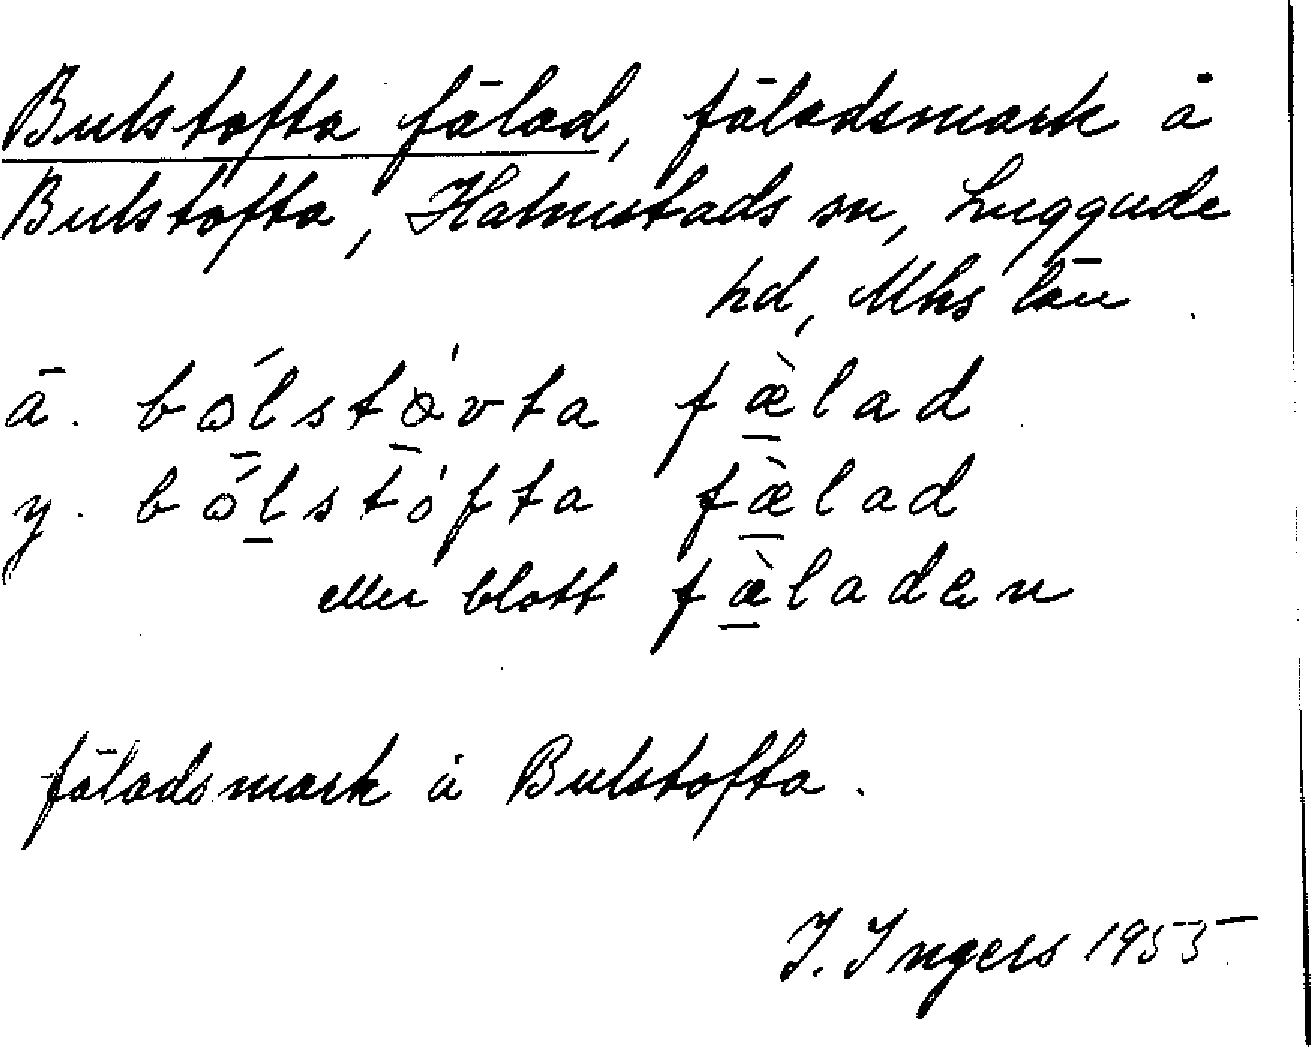 Bulstofta fälad, fäladsmark å
Bulstofta, Halmstads sn, Luggude
hd, Mhs län
ä. bo̱ĺsto̱̍vta fæ̱̀lad
y. bóḻstófta fæ̱̀lad
eller blott fæ̱̀laden
fäladsmark å Bulstofta.
I. Ingers 1955